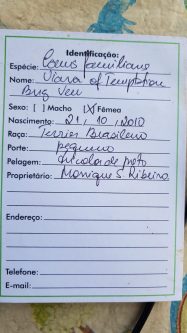 Identificação:
Espécie: Canis familiaris
Nome: Viara of Temptation
Brig Ven
Sexo: [ ] Macho [X] Fêmea
Nascimento: 21, 10, 2010
Raça: Terrier Brasileiro
Porte: pequeno
Pelagem: tricolor de preto
Proprietário: Monique S Ribeiro
Endereço:
Telefone:
E-mail: